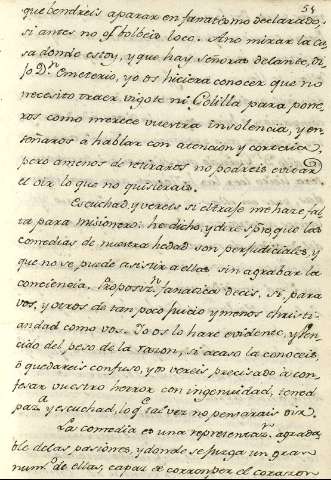 54
que bendreis a parar en fanatismo declarado,
si antes no os bolbeis loco. A no mirar la ca
sa donde estoy, y que hay señoras delante, di
jo Dn. Emeterio, yo os hiciera conocer que no
necesito traer vigote ni Golilla para pone
ros como merece vuestra insolencia, y en
señaros à hablar con atencion y cortesia,
pero amenos de retiraros no podreis evitar
el oir lo que no quisierais.
Escuchad, y vereis si el trage me hace fal
ta para misionero: he dicho, y diré spre. que las
comedias de nuestra hedad son perjudiciales, y
que no se puede asistir a ellas sin agrabar la
conciencia. Proposicn. fanatica decis. si, para
vos, y otros de tan poco juicio y menos christi
andad como vos. Yo os lo haré evidente, y ven
cido del peso de la razon, si acaso la conoceis,
ò quedareis confuso, y os vereis precisado à con
fesar vuestro herror con ingenuidad, tened
paza. y escuchad, lo q. tal vez no pensarais oir.
La comedia es una representazn. agrada
ble de las pasiones, y donde se purga un gran
numo. de ellas, capaz de corromper el corazon